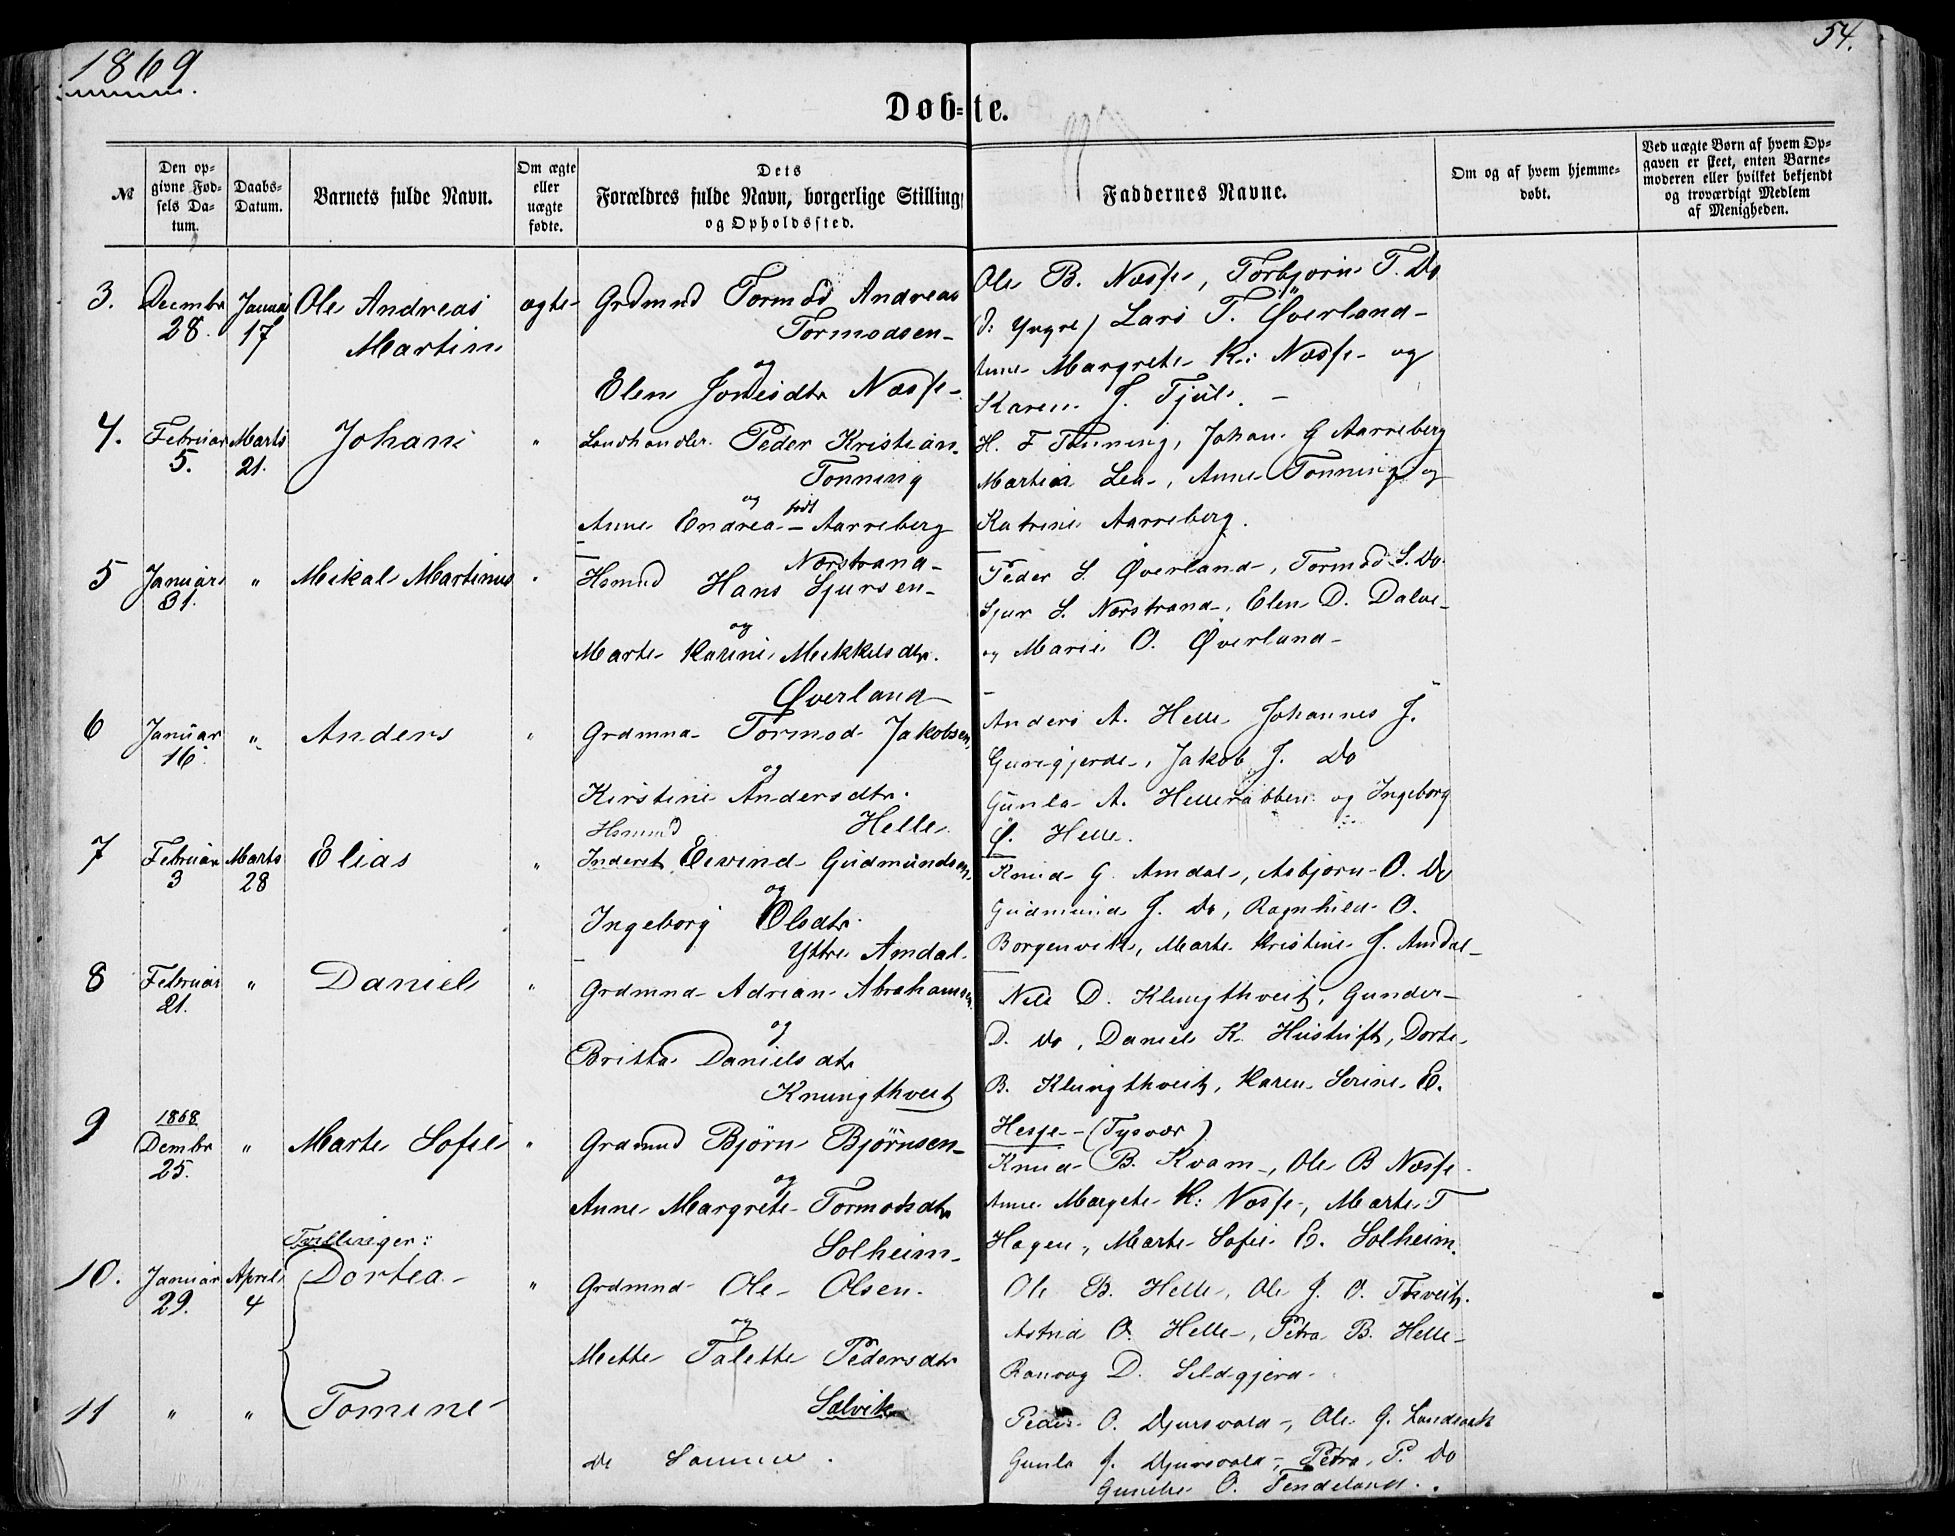 1869
54.
Døb=te.
№
Den opgivne Fødsels Datum.
Daabs-Datum.
Barnets fulde Navn.
Om ægte eller uægte fødte.
Dets Forældres fulde Navn, borgerlige Stilling og Opholdssted.
Faddernes Navne.
Om og af hvem hjemmedøbt.
Ved uægte Børn af hvem Opgaven er skeet, enten Barnemoderen eller hvilket bekjendt og troværdigt Medlem af Menigheden.
3. Decembr 28. Januar 17 Ole Andreas Martin ægte
Grdmnd Tormod Andreas
Tormodsen
og
Elen Jonesdtr Næsse
Ole B. Næsse, Torbjørn T. Do
(d: Yngre) Lars T. Øverland
Anne Margrete K: Næsse og
Karen J. Tjul.
4. Februar 5. Marts 21. Johan "
Landhandler Peder Kristian
Tonning
og født
Anne Endrea Aarreberg
H. F Tonning, Johan G Aarreberg
Martin Lea, Anne Tonning og
Katrine Aarreberg.
5 Januar 31. " Mekal Martinus "
Nørstrand
Hsmnd Hans Sjursen
og
Marte Karine Mekkelsdtr.
Øverland
Peder S. Øverland, Tormod S. Do
Sjur S. Nørstrand, Elen D. Dalve
og Marie O. Øverland
6 Januar 16. " Anders "
Grdmnd Tormod Jakobsen
og
Kirstine Andersdtr.
Helle
Anders A. Helle Johannes J.
Gunegjerde, Jakob J. Do
Gunla A. Hellerabben og Ingeborg
Ø. Helle.
7 Februar 3 Marts 28 Elias "
Hsmnd
Inderst Eivind Gudmundsen
og
Ingeborg Olsdtr.
Yttre Amdal
Knud G. Amdal, Asbjørn O. Do
Gudmund J. Do, Ragnhild O.
Borgenvik, Marte Kristine J. Amdal
8 Februar 21. " Daniel "
Grdmnd Adrian Abrahamsen
og
Britta Danielsdtr
Knungthveit
Nils D. Klungthveit, Gunder
D. Do, Daniel K. Hustuft, Dorte
B. Klungthveit, Karen Serine E.
Hesje (Tysvær)
9 1868 Dembr 25. " Marte Sofie "
Grdmnd Bjørn Bjørnsen
og
Anne Margrete Tormodsdtr
Solheim
Knud B. Kvam, Ole B Næsse
Anne Margete K: Næsse, Marte T
Hagen, Marte Sofie E. Solheim.
Tvillinger:
10. Januar 29. April 4 Dortea "
Grdmnd Ole Olsen.
og
Mette Talette Pedersdtr
Salvik
Ole B. Helle, Ole J. O. Tsveit.
Astrid O. Helle, Petra B. Helle
Ranvog D. Sildgjerd
11 " " Tomine
De Samme.
Peder O. Djursvold, Ole G. Landaak
Gunla J. Djursvold, Petra P. Do
Gunilde O. Tendeland.